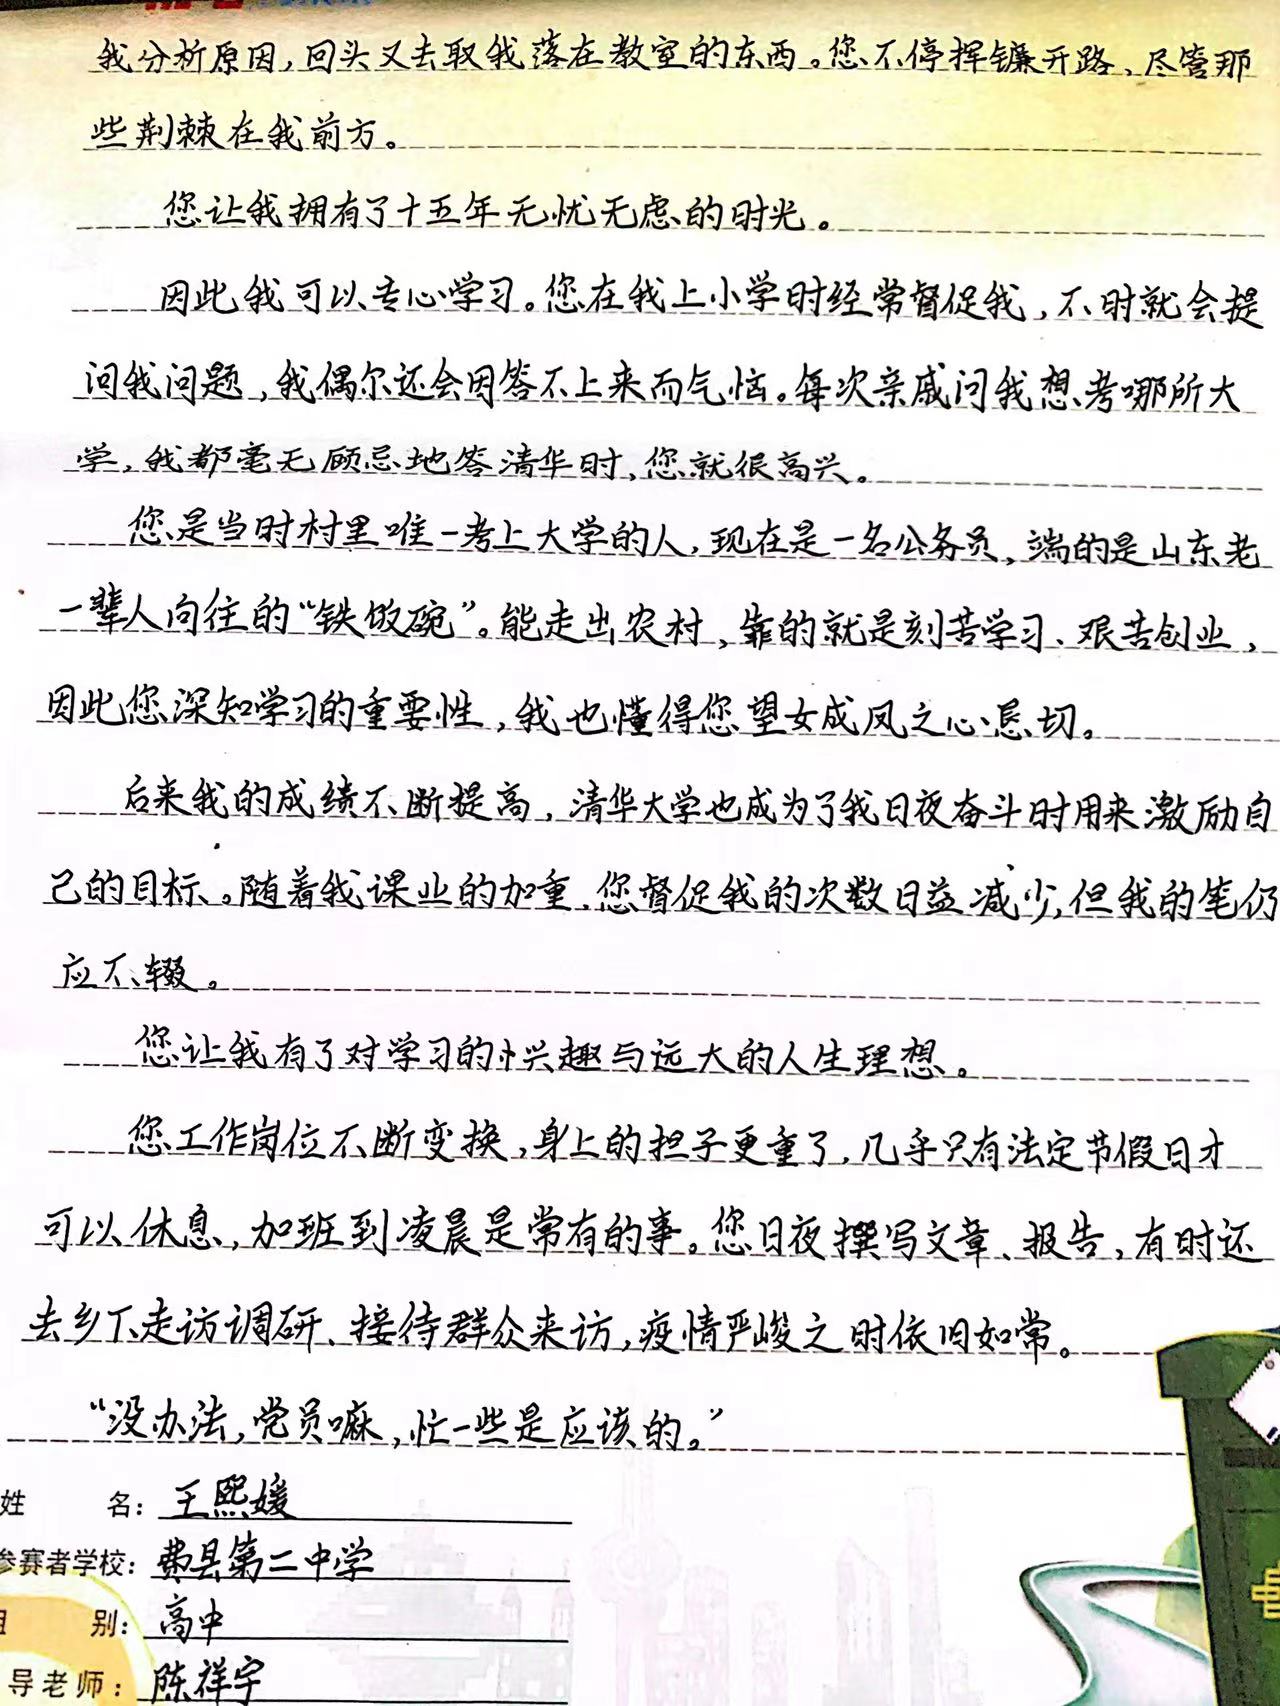 我分析原因，回头又去取我落在教室的东西。您不停挥镰开路、尽管那
些荆棘在我前方。
您让我拥有了十五年无忧无虑的时光。
因此我可以专心学习。您在我上小学时经常督促我，不时就会提
问我问题，我偶尔还会因答不上来而气恼。每次亲戚问我想考哪所大
学，我都毫无顾忌地答清华时，您就很高兴。
您是当时村里唯一考上大学的人，现在是一名公务员，端的是山东老
一辈人向往的“铁饭碗”。能走出农村，靠的就是刻苦学习、艰苦创业，
因此您深知学习的重要性，我也懂得您望女成凤之心恳切。
后来我的成绩不断提高，清华大学也成为了我日夜奋斗时用来激励自
己的目标。随着我课业的加重，您督促我的次数日益减少，但我的笔仍
应不辍。
您让我有了对学习的兴趣与远大的人生理想。
您工作岗位不断变换，身上的担子更重了，几乎只有法定节假日才
可以休息，加班到凌晨是常有的事。您日夜撰写文章、报告，有时还
去乡下走访调研、接待群众来访，疫情严峻之时依旧如常。
“没办法，党员嘛，忙一些是应该的。”
姓 名：王熙媛
参赛者学校：费县第二中学
组 别：高中
导老师：陈祥宇